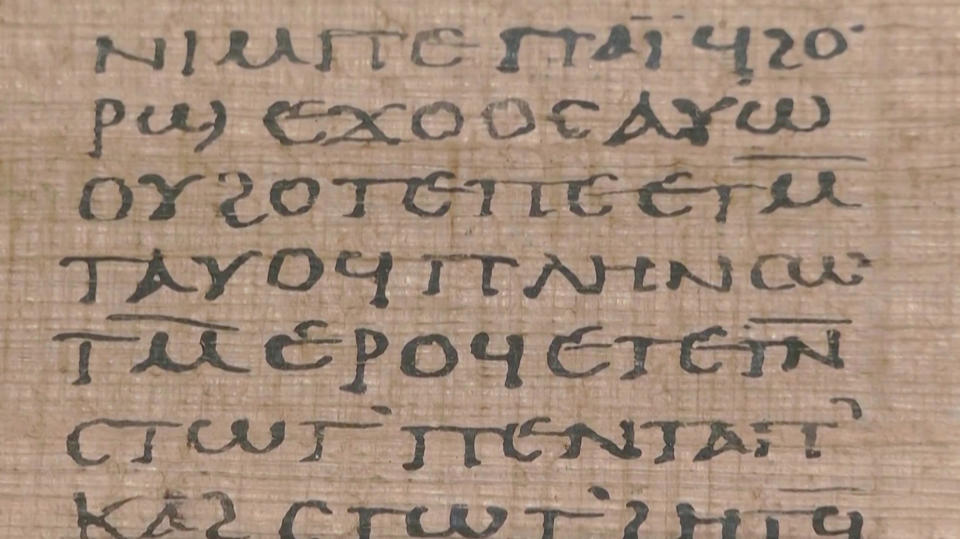 ⲚⲒⲘⲠⲈ ⲠⲀⲒ̈ ϤϨⲞ
ⲢϢ ⲈⲬⲞⲞⲤ ⲀⲨⲰ
ⲞⲨϨⲞⲦⲈⲠⲈ ⲈⲦⲘ̅
ⲦⲀⲨⲞϤ ⲠⲖⲎⲚ ⲤⲰ
ⲦⲘ̅ ⲈⲢⲞϤ ⲈⲦⲈⲦⲚ̅
ⲤⲦⲰⲦ' ⲠⲈⲚⲦⲀⲠ'
ⲔⲀϨ ⲤⲦⲰⲦ' ϨⲎⲦϤ̅